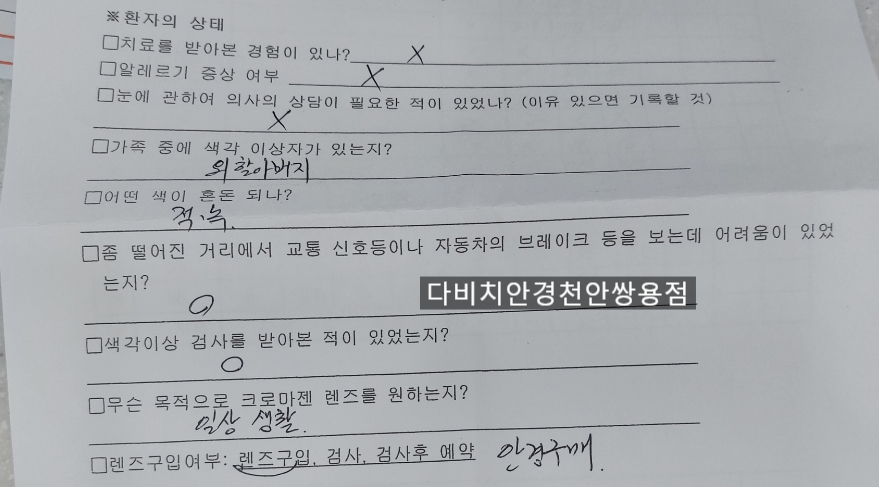 ※환자의 상태
□치료를 받아본 경험이 있나? X
□알레르기 증상 여부 X
□눈에 관하여 의사의 상담이 필요한 적이 있었나? (이유 있으면 기록할 것)
X
□가족 중에 색각 이상자가 있는지?
외할아버지
□어떤 색이 혼돈 되나?
적·녹.
□좀 떨어진 거리에서 교통 신호등이나 자동차의 브레이크 등을 보는데 어려움이 있었
는지?
○
다비치안경천안쌍용점
□색각이상 검사를 받아본 적이 있었는지?
○
□무슨 목적으로 크로마젠 렌즈를 원하는지?
일상 생활.
□렌즈구입여부: 렌즈구입, 검사, 검사후 예약 안경구매.